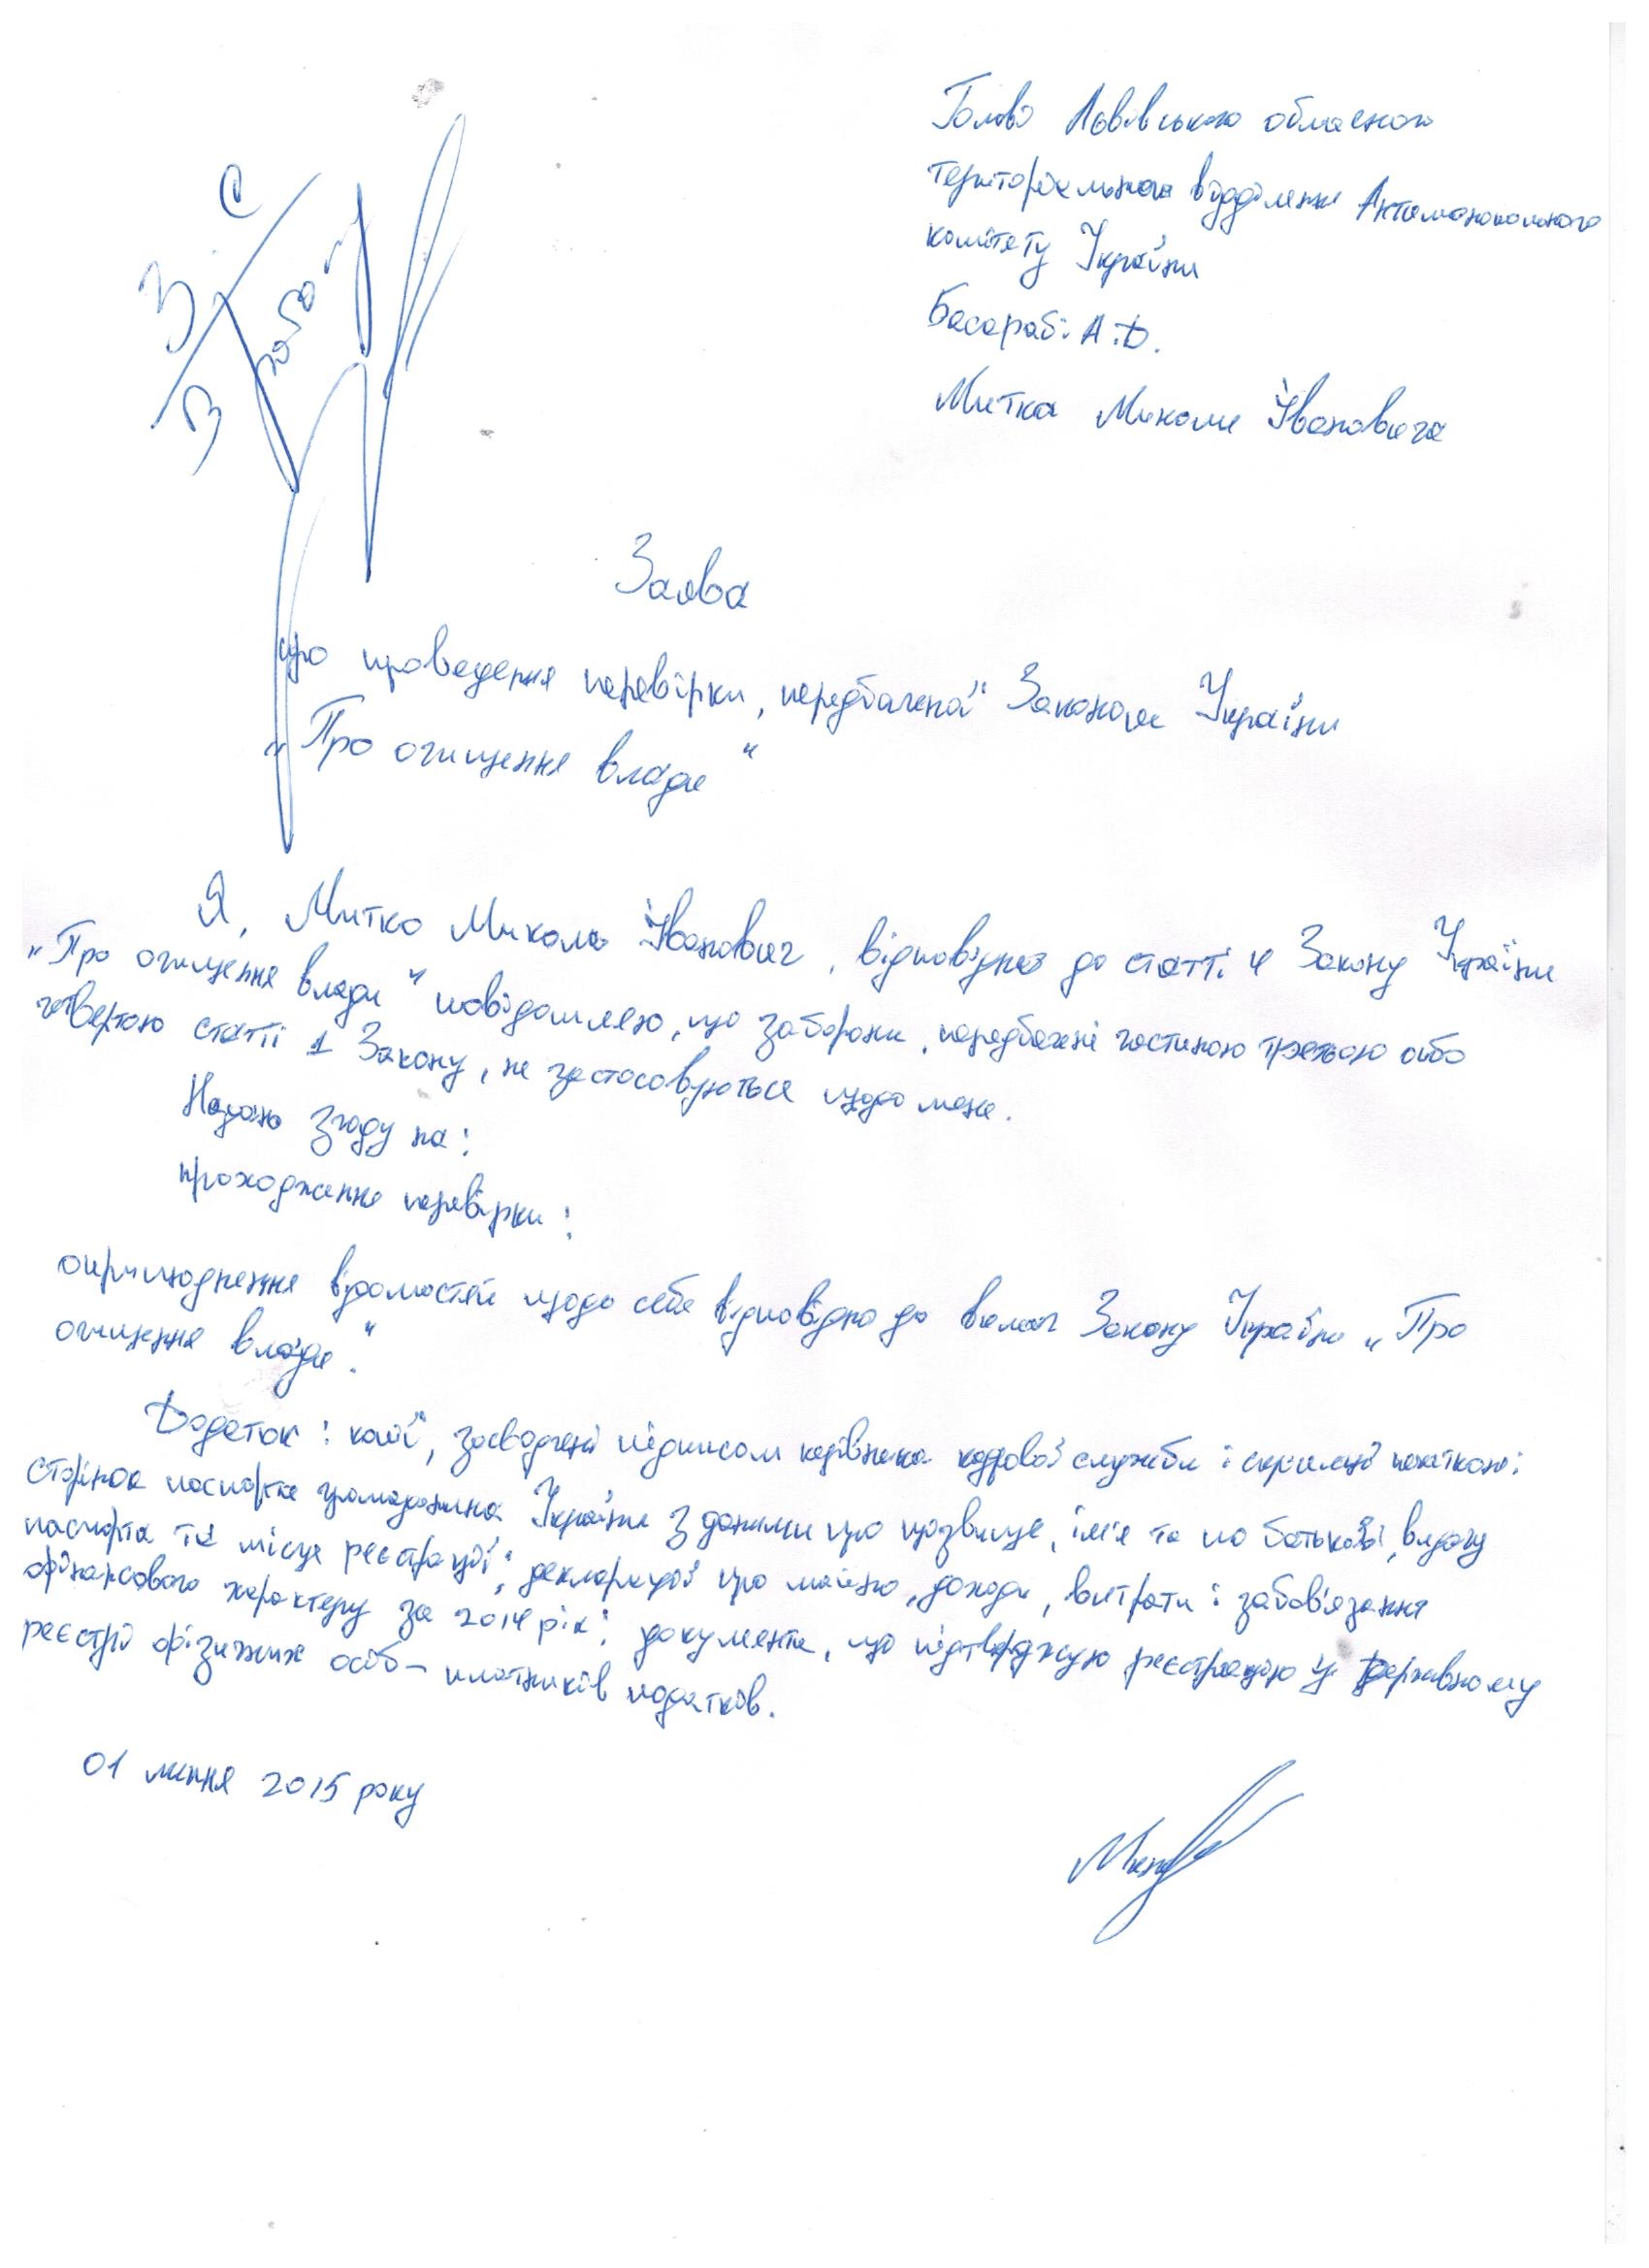 Голові Львівського обласного
територіального відділення Антимонопольного
комітету України
Басарабі А.Д.
Митка Миколи Івановича
Заява
про проведення перевірки, передбаченої Законом України
„Про очищення влади“
Я, Митко Микола Іванович, відповідно до статті 4 Закону України
„Про очищення влади“ повідомляю, що заборони, передбачені частиною третьою або
четвертою статті 1 Закону, не застосовуються щодо мене.
Надаю згоду на:
проходження перевірки;
оприлюднення відомостей щодо себе відповідно до вимог Закону України „Про
очищення влади“.
Додаток: копії, засвідчені підписом керівника кадрової служби і скріплені печаткою:
сторінок паспорта громадянина України з даними про прізвище, ім'я та по батькові, видачу
паспорта та місце реєстрації; декларації про майно, доходи, витрати і забов'язання
фінансового характеру за 2014 рік; документа, що підтверджую реєстрацію у Державному
реєстрі фізичних осіб – платників податків.
01 липня 2015 року